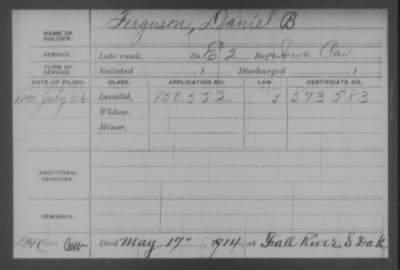 NAME OF SOLDIER: Ferguson, Daniel B
SERVICE: Late rank, Co. E 2 Reg't Iowa Cav
TERM OF SERVICE: Enlisted , 1 Discharged , 1
DATE OF FILING. CLASS. APPLICATION NO. LAW. CERTIFICATE NO.
1890 July 26 Invalid, 850.552 J 573583
Widow,
Minor,
ADDITIONAL SERVICES:
REMARKS:
Died May 17" , 1914, at Fall River, S Dak